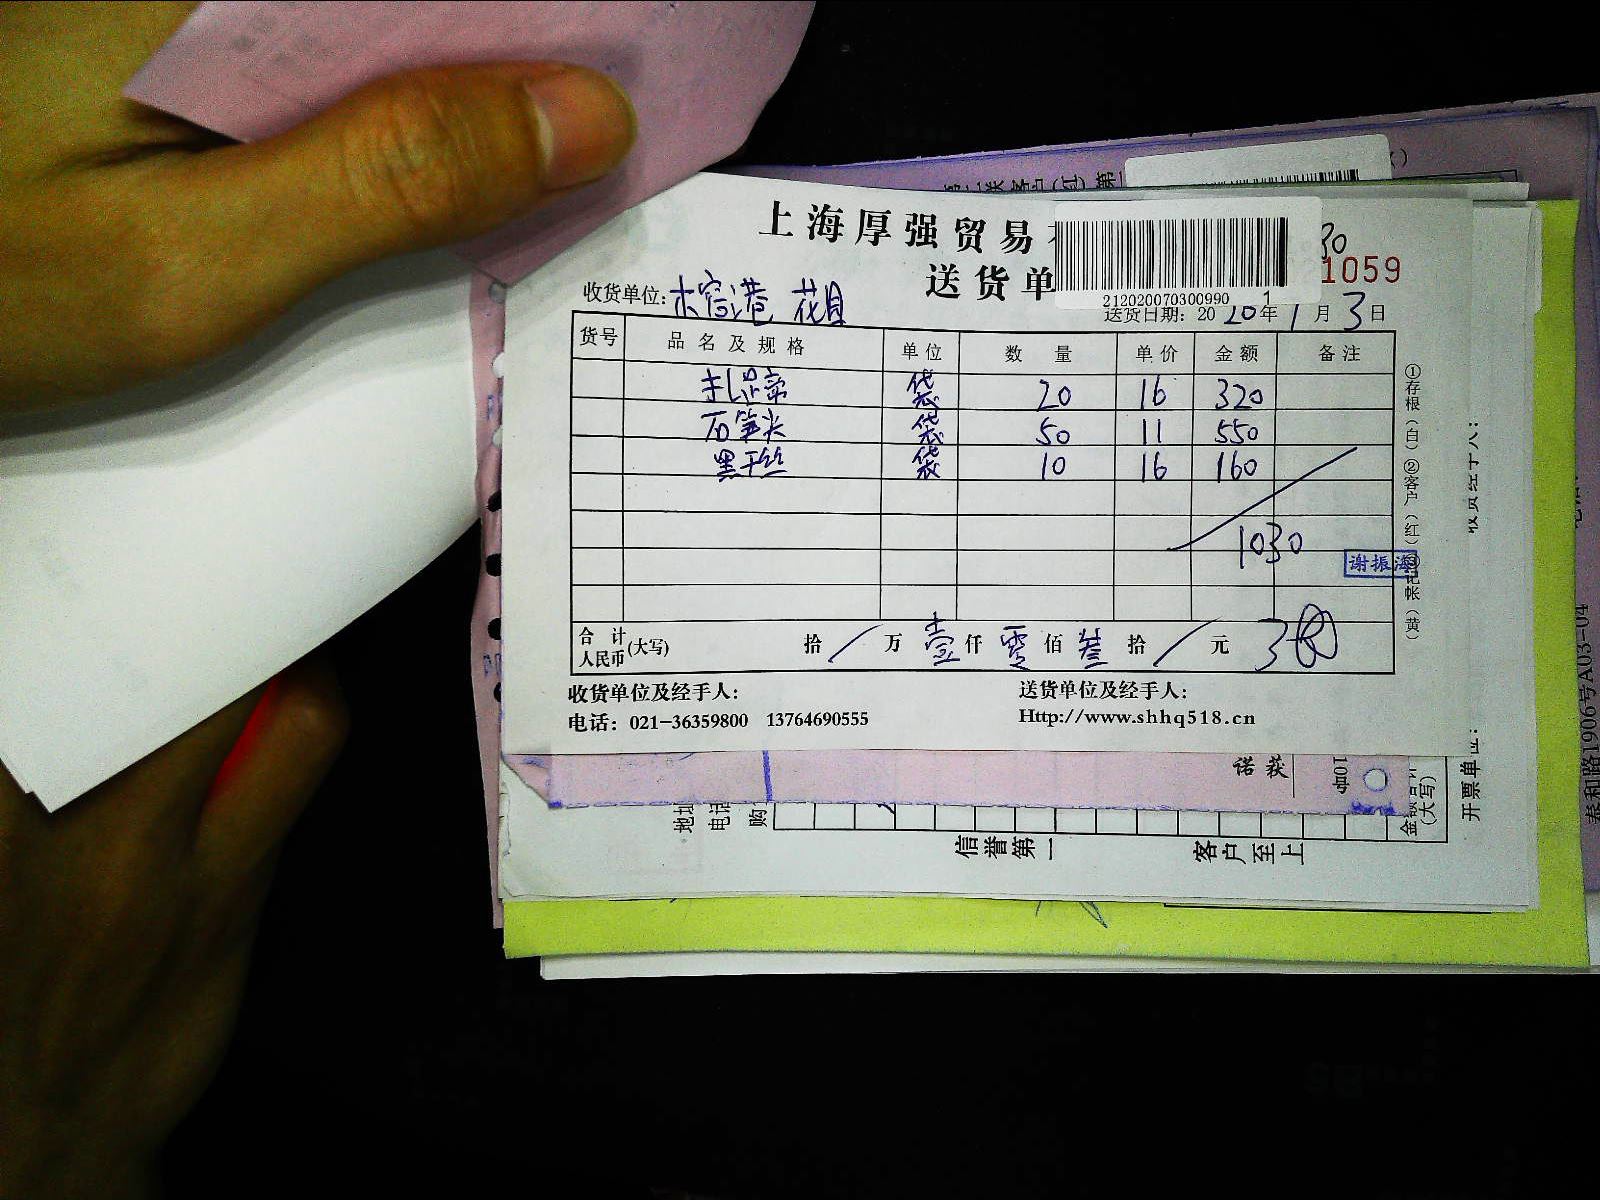 上海厚强贸易
送货单
30
1059
212020070300990 1
收货单位:
送货日期: 2020年1月3日
货号 品名及规格 单位 数量 单价 金额 备注
袋 20 16 320
石笋尖 袋 50 11 550
黑干丝 袋 10 16 160
1030
谢振海
合计人民币(大写) 拾 / 万 壹 仟 零 佰 叁 拾 / 元
收货单位及经手人:
送货单位及经手人:
电话: 021-36359800 13764690555
Http://www.shhq518.cn
①存根(白)②客户(红)③记帐(黄)
诺获
地址
电话
购
信誉第一
客户至上
(大写)
开票单位:
泰和路1906号A03-04